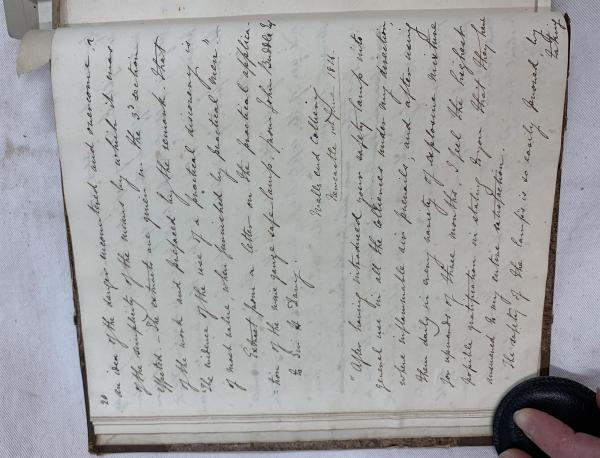 20
an idea of the danger encountered and overcome &
of the simplicity of the means by which it was
effected. The extracts are given in the 3d section
of the work and prefaced by the remark that
"the evidence of the use of a practical discovery is
of most value, when furnished by practical men"
Extract from a letter on the practical applica-
-tion of the wire gauze safe-lamp, from John Buddle Esq
to Sir H. Davy.
Walls end Colliery
Newcastle June 1816.
"After having introduced your safety lamp into
general use in all the collieries under my direction
where inflammable air prevails, and after using
them daily in every variety of explosive mixture
for upwards of three months, I feel the highest
possible gratification in stating to you that they have
answered to my entire satisfaction.
The safety of the lamps is so easily proved by